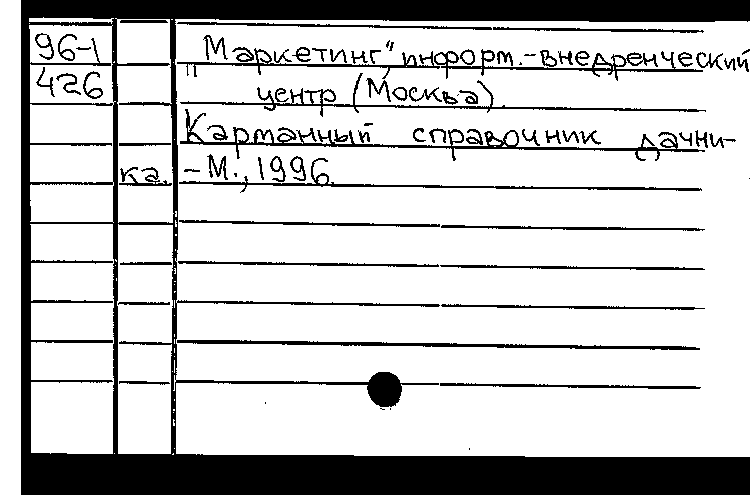 96-1 "Маркетинг", информ.-внедренческий
426 центр (Москва).
Карманный справочник дачни-
ка. - М., 1996.